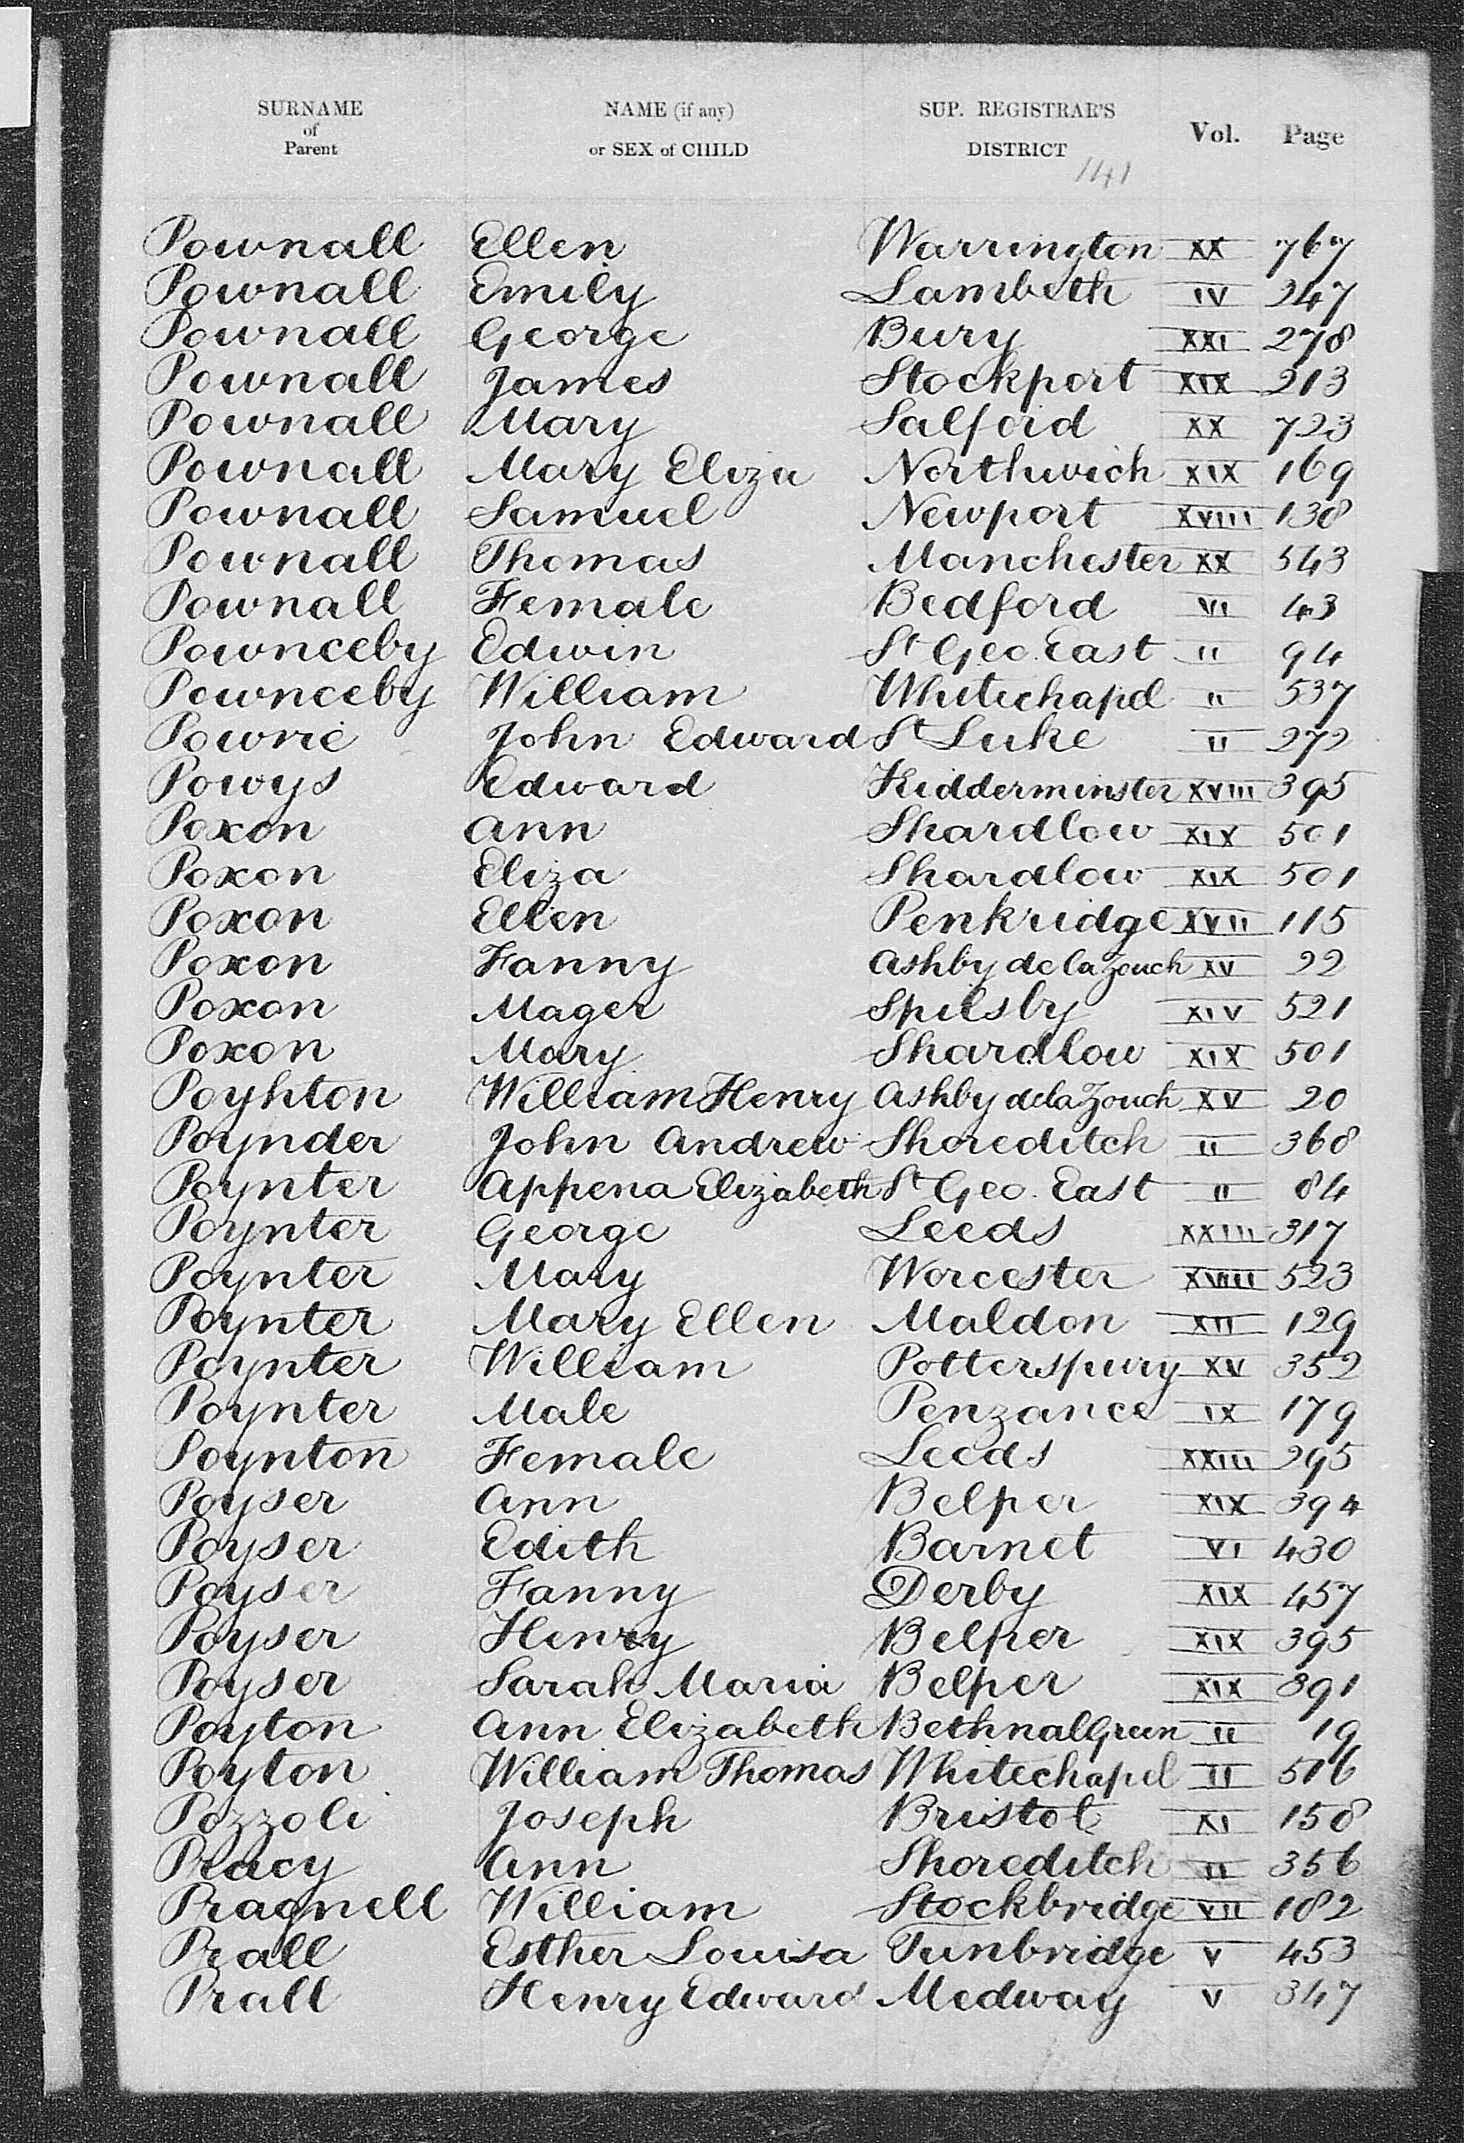 SURNAME of Parent NAME (if any) or SEX of CHILD SUP. REGISTRAR'S DISTRICT Vol. Page
141
Pownall Ellen Warrington XX 767
Pownall Emily Lambeth IV 247
Pownall George Bury XXI 278
Pownall James Stockport XIX 213
Pownall Mary Salford XX 723
Pownall Mary Eliza Northwich XIX 169
Pownall Samuel Newport XVIII 138
Pownall Thomas Manchester XX 543
Pownall Female Bedford VI 43
Pownceby Edwin St Geo. East II 94
Pownceby William Whitechapel II 537
Powrie John Edward St Luke II 272
Powys Edward Kidderminster XVIII 395
Poxon Ann Shardlow XIX 501
Poxon Eliza Shardlow XIX 501
Poxon Ellen Penkridge XVII 115
Poxon Fanny Ashby de la Zouch XV 22
Poxon Mager Spilsby XIV 521
Poxon Mary Shardlow XIX 501
Poyhton William Henry Ashby de la Zouch XV 20
Poynder John Andrew Shoreditch II 368
Poynter Appena Elizabeth St Geo. East II 84
Poynter George Leeds XXIII 317
Poynter Mary Worcester XVIII 523
Poynter Mary Ellen Maldon XII 129
Poynter William Potterspury XV 352
Poynter Male Penzance IX 179
Poynton Female Leeds XXIII 295
Poyser Ann Belper XIX 394
Poyser Edith Barnet VI 430
Poyser Fanny Derby XIX 457
Poyser Henry Belper XIX 395
Poyser Sarah Maria Belper XIX 391
Poyton Ann Elizabeth Bethnal Green II 19
Poyton William Thomas Whitechapel II 516
Pozzoli Joseph Bristol XI 158
Pracy Ann Shoreditch II 356
Pragnell William Stockbridge VII 182
Prall Esther Louisa Tunbridge V 453
Prall Henry Edward Medway V 347